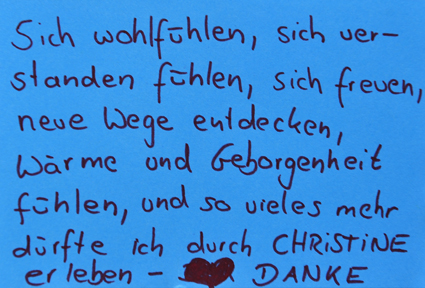 Sich wohlfühlen, sich ver-
standen fühlen, sich freuen,
neue Wege entdecken,
Wärme und Geborgenheit
fühlen, und so vieles mehr
dürfte ich durch CHRiSTiNE
erleben - DANKE